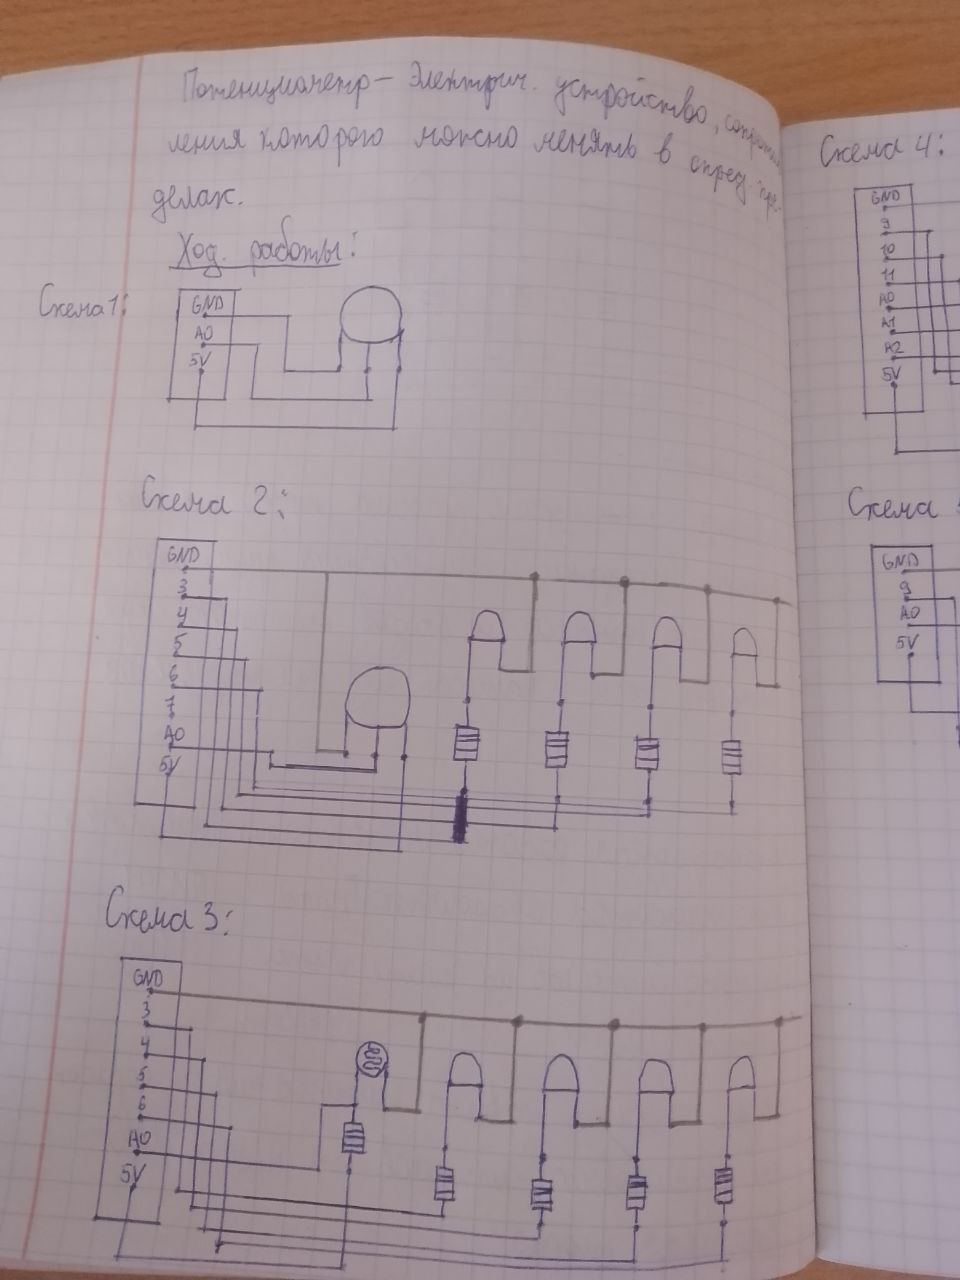 Потенциометр – Электрич. устройство, сопротив
ления которого можно менять в опред. пре-
делах.
Ход. работы:
Схема 1:
GND
A0
5V
Схема 2:
GND
3
4
5
6
7
A0
5V
Схема 3:
GND
3
4
5
6
A0
5V
Схема 4:
GND
9
10
11
A0
A1
A2
5V
Схема
GND
9
A0
5V